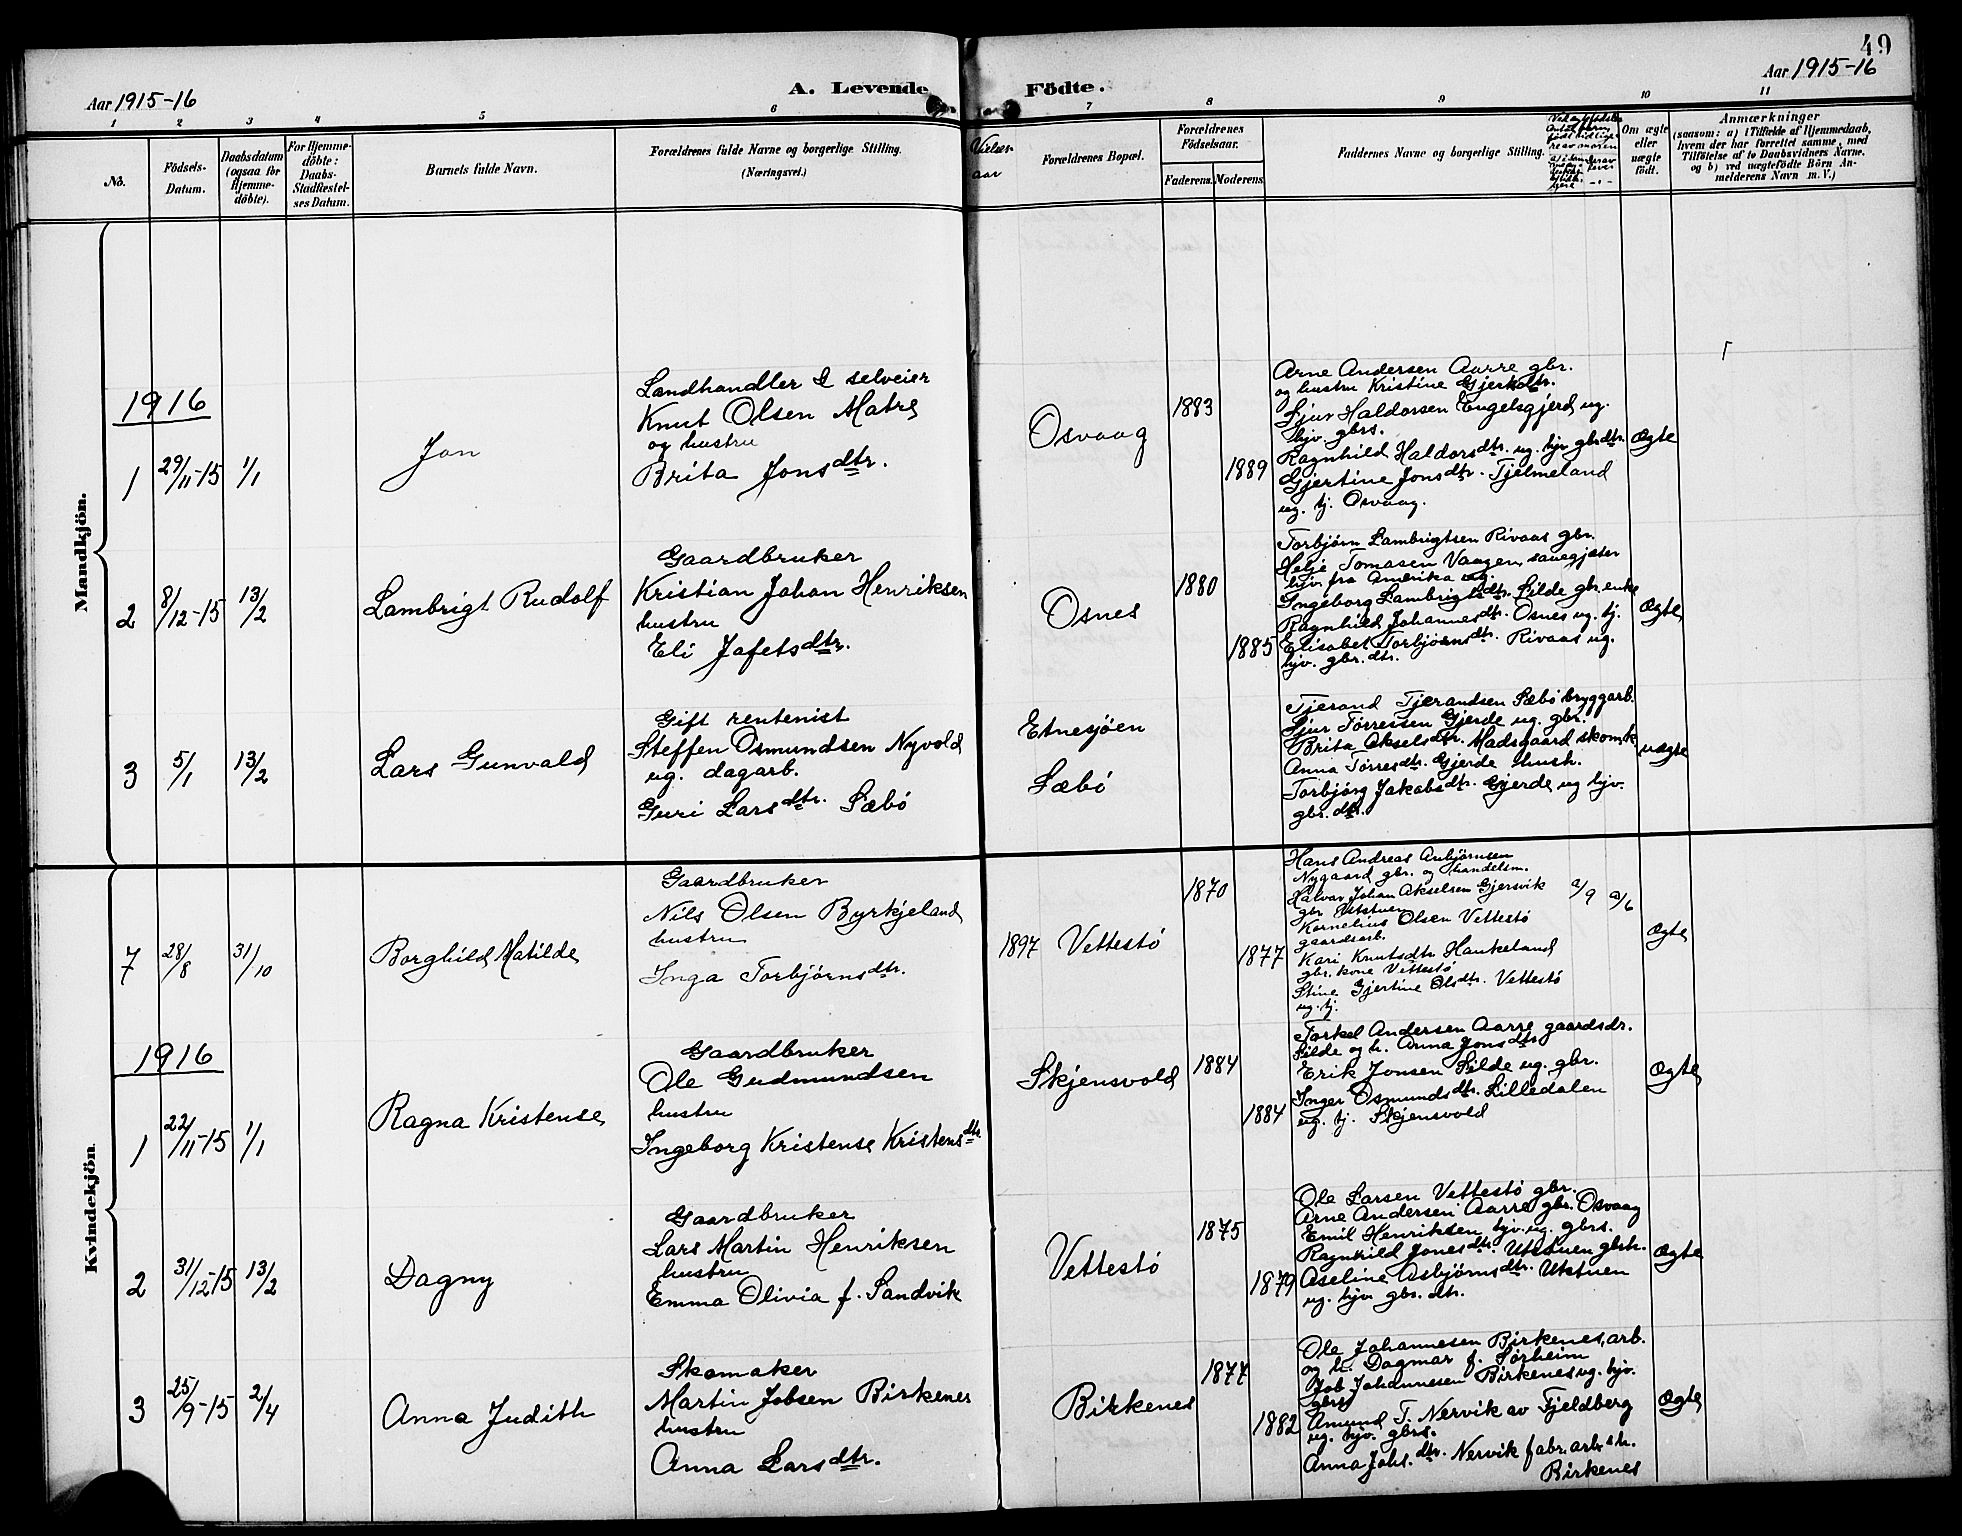 49
Aar 1915-16
A. Levende Födte.
Aar 1915-16
1 2 3 4 5 6 7 8 9 10 11
No.
Födsels-
Datum.
Daabsdatum
(ogsaa for
Hjemme-
døbte).
For Hjemme-
döbte:
Daabs-
Stadfæstel-
ses Datum.
Barnets fulde Navn.
Forældrenes fulde Navne og borgerlige Stilling.
(Næringsvei.)
Vielses
aar
Forældrenes Bopæl.
Forældrenes
Födselsaar.
Faderens.
Moderens.
Faddernes Navne og borgerlige Stilling.
Om ægte
eller
uægte
født.
Anmærkninger
(saasom: a) i Tilfælde af Hjemmedaab,
hvem der har forrettet samme, med
Tilföielse af to Daabsvidners Navne.
og b) ved uægtefödte Börn An-
melderens Navn m. V.)
Mandkjön.
1916
1 29/11-15 1/1
Jon
Landhandler & selveier
Knut Olsen Matre
og hustru
Brita Jonsdtr.
Osvaag
1883
1889
Arne Andersen Aarre gbr.
og hustru Kristine Gjerksdtr.
Sjur Haldorsen Engelsgjerd ug.
hjv. gbrs.
Ragnhild Haldorsdtr. ug. hjv gbrdtr.
Gjertine Jonsdtr. Tjelmeland
ug. tj. Osvaag.
Ægte
2 8/12-15 13/2
Lambrigt Rudolf
Gaardbruker
Kristian Johan Henriksen
hustru
Eli Jafetsdtr.
Osnes
1880
1885
Torbjørn Lambrigtsen Rivaas gbr.
Helje Tomasen Vaagen, sauegjæter
hjv. fra Amerika ug.
Ingeborg Lambrigtsdtr. Silde gbr. enke
Ragnhild Johannesdtr. Osnes ug. tj.
Elisabet Torbjørnsdtr. Rivaas ug.
hjv. gbr. dtr.
Ægte
3 5/1 13/2
Lars Gunvald
Gift rentenist
Steffen Osmundsen Nyvold
ug. dagarb.
Guri Larsdtr. Sæbö
Etnesjøen
Sæbö
Tjerand Tjerandsen Sæbö bryggarb.
Sjur Tørressen Gjerde ug. gbr.
Brita Akselsdtr. Madsgaard skom.k.
Anna Tørresdtr. Gjerde hush.
Torbjörg Jakobsdtr. Gjerde ug hjv.
gbr. dtr.
uægte
Kvindekjön
7 28/8 31/10
Borghild Matilde
Gaardbruker
Nils Olsen Byrkjeland
hustru
Inga Torbjørnsdtr.
1897 Vettestö
1870
1877
Hans Andreas Anbjørnsen
Nygaard gbr. og handelsm.
Halvor Johan Akselsen Gjersvik
gbr Utstuen
Kornelius Olsen Vettestö
gaardsarb.
Kari Knutsdtr Haukeland
gbr. kone Vettestö
Stine Gjertine Olsdtr. Vettestö
ug. tj.
a/9 a/6
Ægte
1916
1 22/11-15 1/1
Ragna Kristense
Gaardbruker
Ole Gudmundsen
hustru
Ingeborg Kristense Kristensdtr
Skjensvold
1884
1884
Torkel Andersen Aarre gaardsdr.
Silde og h. Anna Jonsdtr
Erik Jonsen Silde ug. gbr.
Inger Osmundsdtr. Lilledalen
ug. tj. Skjensvold
Ægte
2 31/12-15 13/2
Dagny
Gaardbruker
Lars Martin Henriksen
hustru
Emma Olivia f. Sandvik
Vettestö
1875
1879
Ole Larsen Vettestö gbr.
Arne Andersen Aarre gbr. Osvaag
Emil Henriksen hjv. ug. gbrs.
Ragnhild Jonesdtr. Utstuen gbrh.
Aseline Asbjørnsdtr. Utstuen
ug. hjv gbr. dtr.
Ægte
3 25/9-15 2/4
Anna Judith
Skomaker
Martin Jobsen Birkenes
hustru
Anna Larsdtr.
Birkenes
1877
1882
Ole Johannesen Birkenes, arb.
og h. Dagmar f. Sørheim
Job Johannesen Birkenes ug. hjv.
gbrs
Amund T. Nervik av Fjeldberg
ug. hjv. gbrs.
Anna Johs.dtr. Nervik fabr.arb.s h.
Birkenes
Ægte